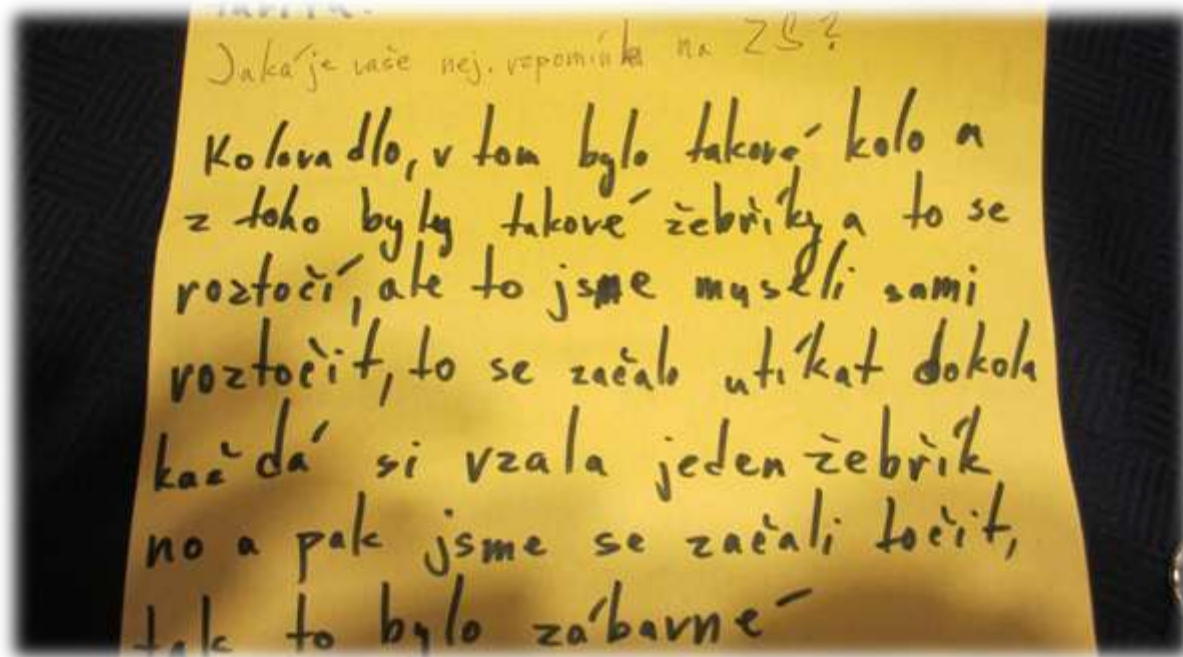 Jaká je vaše nej. vzpomínka na ZŠ?
Kolovadlo, v tom bylo takové kolo a
z toho byly takové žebříky a to se
roztočí, ale to jsme museli sami
roztočit, to se začalo utíkat dokola
každá si vzala jeden žebřík
no a pak jsme se začali točit,
tak to bylo zábavné